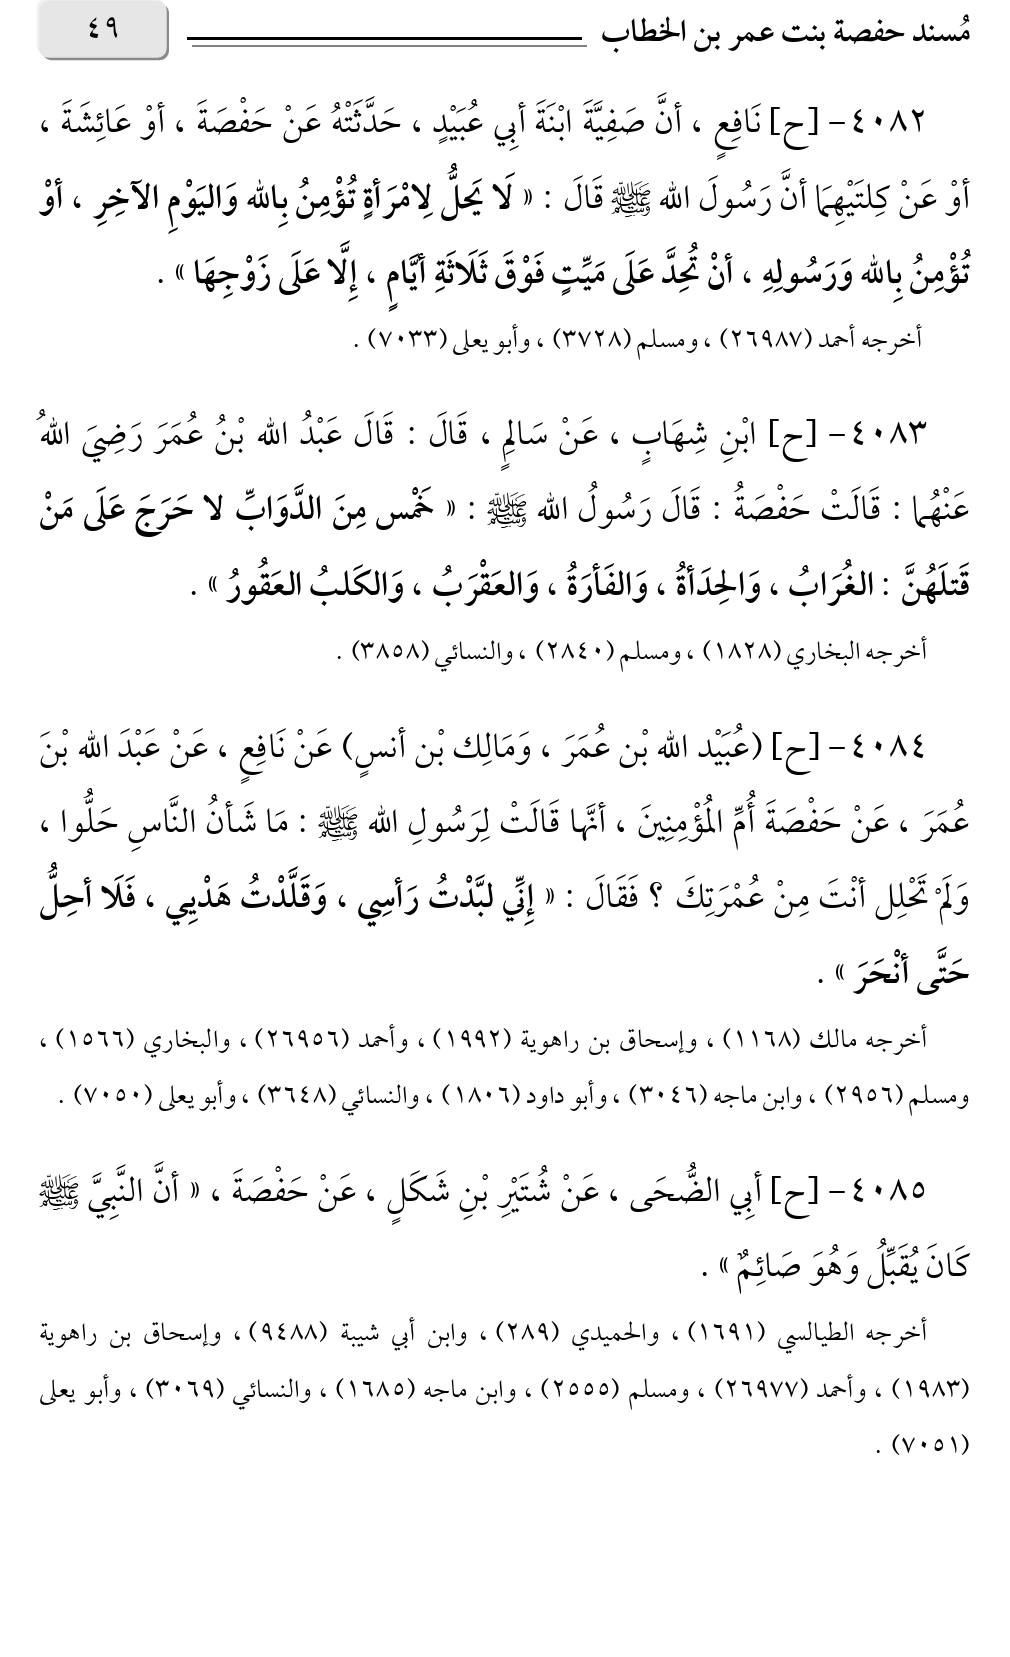 مُسند حفصة بنت عمر بن الخطاب ٤٩
٤٠٨٢- [ح] نَافِعٍ ، أنَّ صَفِيَّةَ ابْنَةَ أبِي عُبَيْدٍ ، حَدَّثَتْهُ عَنْ حَفْصَةَ ، أوْ عَائِشَةَ ،
أوْ عَنْ كِلتَيْهِمَا أنَّ رَسُولَ الله ﷺ قَالَ : « لَا يَحِلُّ لِامْرَأةٍ تُؤْمِنُ بِالله وَاليَوْمِ الآخِرِ ، أوْ
تُؤْمِنُ بِالله وَرَسُولِهِ ، أنْ تُحِدَّ عَلَى مَيِّتٍ فَوْقَ ثَلَاثَةِ أيَّامٍ ، إِلَّا عَلَى زَوْجِهَا » .
أخرجه أحمد (٢٦٩٨٧) ، ومسلم (٣٧٢٨) ، وأبو يعلى (٧٠٣٣) .
٤٠٨٣- [ح] ابْنِ شِهَابٍ ، عَنْ سَالِمٍ ، قَالَ : قَالَ عَبْدُ الله بْنُ عُمَرَ رَضِيَ اللهُ
عَنْهُما : قَالَتْ حَفْصَةُ : قَالَ رَسُولُ الله ﷺ : « خَمْس مِنَ الدَّوَابِّ لا حَرَجَ عَلَى مَنْ
قَتلَهُنَّ : الغُرَابُ ، وَالحِدَأةُ ، وَالفَأرَةُ ، وَالعَقْرَبُ ، وَالكَلبُ العَقُورُ » .
أخرجه البخاري (١٨٢٨) ، ومسلم (٢٨٤٠) ، والنسائي (٣٨٥٨) .
٤٠٨٤- [ح] (عُبَيْد الله بْن عُمَرَ ، وَمَالِك بْن أنسٍ) عَنْ نَافِعٍ ، عَنْ عَبْدَ الله بْنَ
عُمَرَ ، عَنْ حَفْصَةَ أُمِّ المُؤْمِنِينَ ، أنَّها قَالَتْ لِرَسُولِ الله ﷺ : مَا شَأنُ النَّاسِ حَلُّوا ،
وَلَمْ تَحْلِل أنْتَ مِنْ عُمْرَتِكَ ؟ فَقَالَ : « إِنِّي لبَّدْتُ رَأسِي ، وَقَلَّدْتُ هَدْيِي ، فَلَا أحِلُّ
حَتَّى أنْحَرَ » .
أخرجه مالك (١١٦٨) ، وإسحاق بن راهوية (١٩٩٢) ، وأحمد (٢٦٩٥٦) ، والبخاري (١٥٦٦) ،
ومسلم (٢٩٥٦) ، وابن ماجه (٣٠٤٦) ، وأبو داود (١٨٠٦) ، والنسائي (٣٦٤٨) ، وأبو يعلى (٧٠٥٠) .
٤٠٨٥- [ح] أبِي الضُّحَى ، عَنْ شُتَيْرِ بْنِ شَكَلٍ ، عَنْ حَفْصَةَ ، « أنَّ النَّبِيَّ ﷺ
كَانَ يُقَبِّلُ وَهُوَ صَائِمٌ » .
أخرجه الطيالسي (١٦٩١) ، والحميدي (٢٨٩) ، وابن أبي شيبة (٩٤٨٨) ، وإسحاق بن راهوية
(١٩٨٣) ، وأحمد (٢٦٩٧٧) ، ومسلم (٢٥٥٥) ، وابن ماجه (١٦٨٥) ، والنسائي (٣٠٦٩) ، وأبو يعلى
(٧٠٥١) .